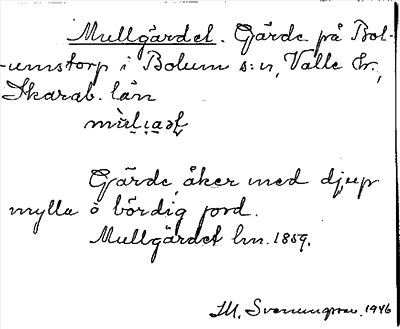 Mullgärdet. Gärde på Bol-
-umstorp i Bolum s:n, Valle hr.,
Skarab. län
Gärde, åker med djup
mylla o bördig jord.
Mullgärdet lm. 1859.
M. Svenungsson. 1946